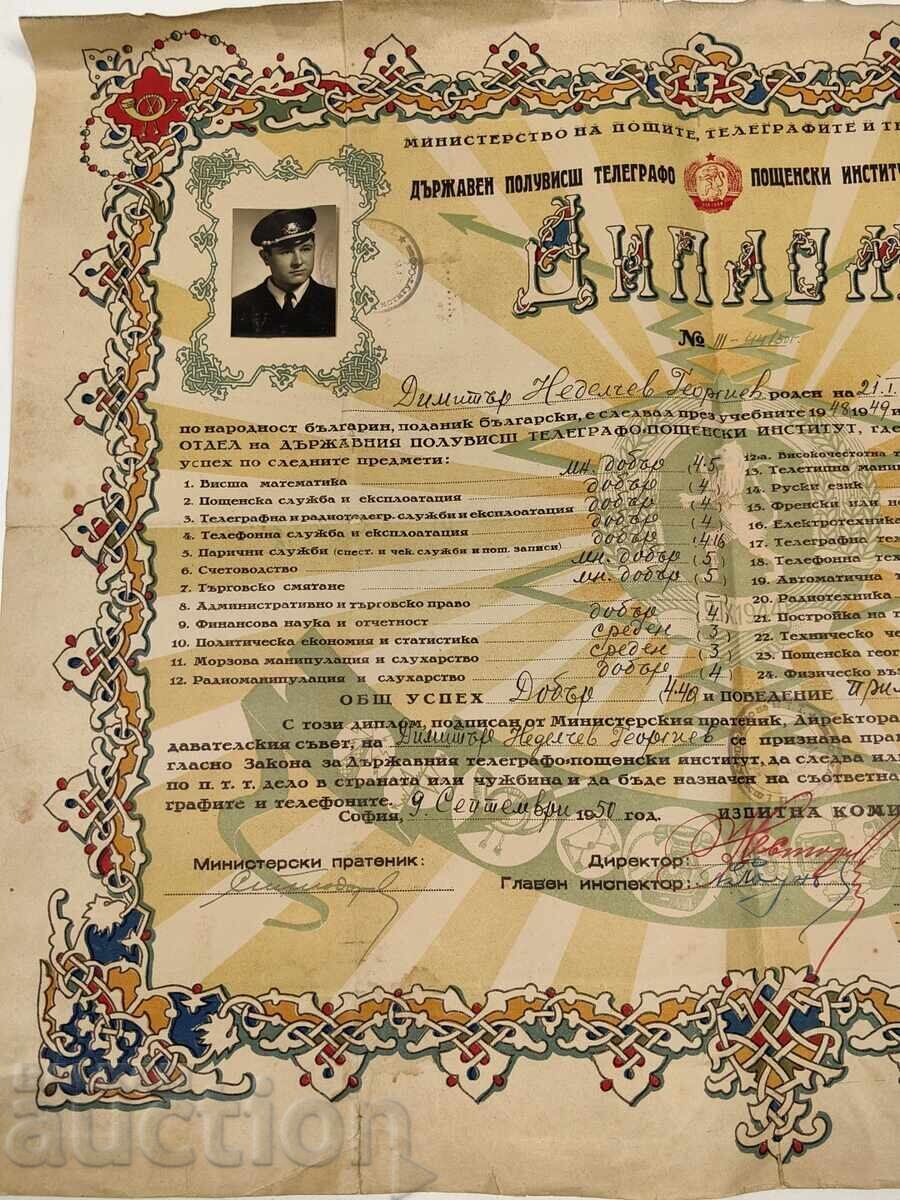 МИНИСТЕРСТВО НА ПОЩИТЕ, ТЕЛЕГРАФИТЕ И ТЕ
ДЪРЖАВЕН ПОЛУВИСШ ТЕЛЕГРАФО ПОЩЕНСКИ ИНСТИТУ
ДИПЛОМ
№ III-44/50г.
Димитър Неделчев Георгиев роден на 21.I.
по народност българин, поданик български, е следвал през учебните 1948/1949 и
ОТДЕЛ НА ДЪРЖАВНИЯ ПОЛУВИСШ ТЕЛЕГРАФО-ПОЩЕНСКИ ИНСТИТУТ, где
успех по следните предмети:
1. Висша математика мн. добър (4.5
2. Пощенска служба и експлоатация добър (4
3. Телеграфна и радиотелегр. служби и експлоатация добър (4
4. Телефонна служба и експлоатация добър (4)
5. Парични служби (спест. и чек. служби и пощ. записи) добър (4
6. Счетоводство мн. добър (5)
7. Търговско смятане мн. добър (5)
8. Административно и търговско право
9. Финансова наука и отчетност добър (4
10. Политическа економия и статистика среден (3)
11. Морзова манипулация и слухарство среден (3)
12. Радиоманипулация и слухарство добър (4
12-а. Високочестотна т
13. Телетипна мани
14. Руски език
15. Френски или не
16. Електротехника
17. Телеграфна те
18. Телефонна тех
19. Автоматична т
20. Радиотехника
21. Постройка на т
22. Техническо че
23. Пощенска геог
24. Физическо въз
ОБЩ УСПЕХ Добър (4.40 и ПОВЕДЕНИЕ При
С този диплом, подписан от Министерския пратеник, Директора
давателския съвет, на Димитър Неделчев Георгиев се признава пра
гласно Закона за Държавния телеграфо-пощенски институт, да следва или
по п. т. т. дело в страната или чужбина и да бъде назначен на съответна
графите и телефоните.
София, 9 Септември 1950 год. ИЗПИТНА КОМИ
Министерски пратеник:
Директор:
Главен инспектор:
auction